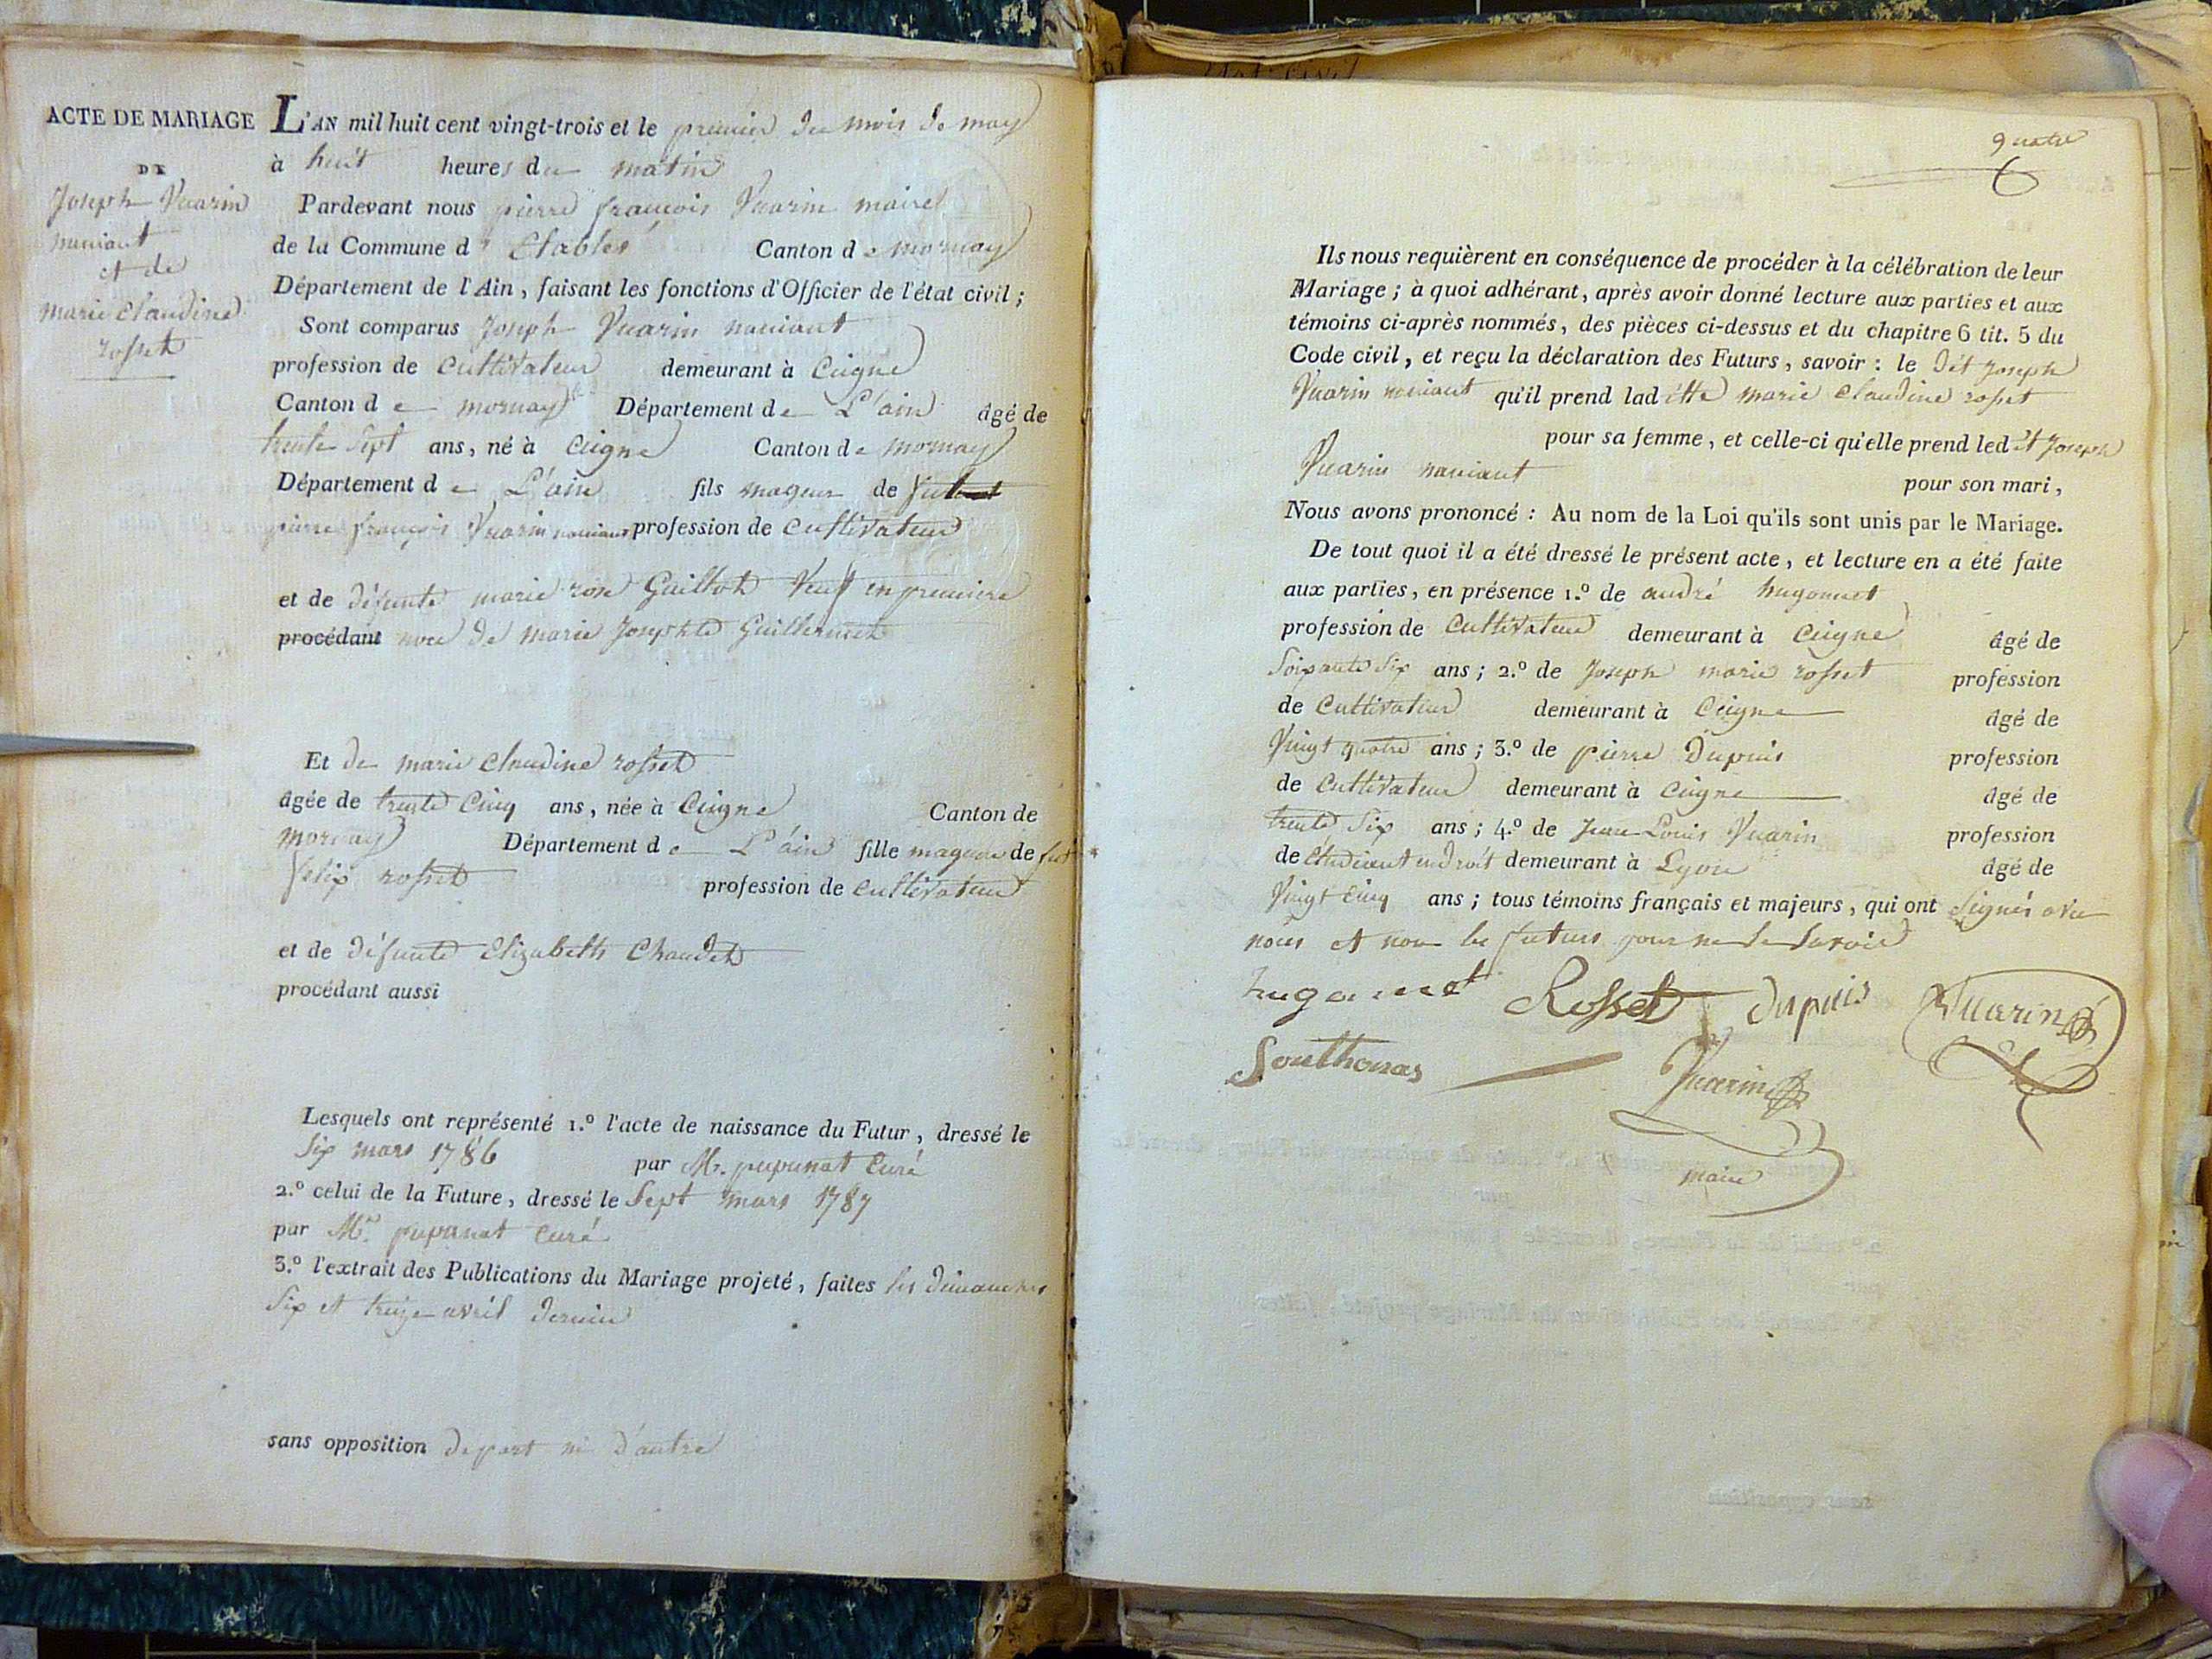 ACTE DE MARIAGE
DE
Joseph Vuarin
naniant
et de
marie Claudine
rosset
L'AN mil huit cent vingt-trois et le premier du mois de may
à huit heures du matin
Pardevant nous pierre françois Vuarin maire
de la Commune d'Etables Canton de mornay
Département de l'Ain, faisant les fonctions d'Officier de l'état civil;
Sont comparus Joseph Vuarin naniant
profession de Cultivateur demeurant à Ceigne
Canton de mornay Département de L'ain âgé de
trente Sept ans, né à Ceigne Canton de mornay
Département de L'ain fils mageur de
pierre françois Vuarin naniant profession de Cultivateur
et de défunte marie rose Guillot Veuf en premiere
procédant noce de marie Josephte Guillermet
Et de marie Claudine rosset
âgée de trente Cinq ans, née à Ceigne Canton de
mornay Département de L'ain fille mageure de fut
felix rosset profession de cultivateur
et de défunte Elizabeth Chaudet
procédant aussi
Lesquels ont représenté 1.º l'acte de naissance du Futur, dressé le
Six mars 1786 par Mr. pupunat Curé
2.º celui de la Future, dressé le Sept mars 1787
par Mr. pupunat Curé
3.º l'extrait des Publications du Mariage projeté, faites les dimanches
Six et treize avril dernier
sans opposition depart ni d'autre
quatre
Ils nous requièrent en conséquence de procéder à la célébration de leur
Mariage; à quoi adhérant, après avoir donné lecture aux parties et aux
témoins ci-après nommés, des pièces ci-dessus et du chapitre 6 tit. 5 du
Code civil, et reçu la déclaration des Futurs, savoir: le dét Joseph
Vuarin naniant qu'il prend ladétte marie Claudine rosset
pour sa femme, et celle-ci qu'elle prend ledét Joseph
Vuarin naniant pour son mari,
Nous avons prononcé: Au nom de la Loi qu'ils sont unis par le Mariage.
De tout quoi il a été dressé le présent acte, et lecture en a été faite
aux parties, en présence 1.º de andré hugonnet
profession de Cultivateur demeurant à Ceigne âgé de
Soixante Six ans; 2.º de Joseph marie rosset profession
de Cultivateur demeurant à Ceigne âgé de
Vingt quatre ans; 3.º de pierre Dupuis profession
de Cultivateur demeurant à Ceigne âgé de
trente Six ans; 4.º de Jean Louis Vuarin profession
de étudiant en droit demeurant à Lyon âgé de
Vingt Cinq ans; tous témoins français et majeurs, qui ont Signés avec
nous et non les futurs pour ne le Savoir
hugonnet Rosset dupuis Vuarin
Southonas Vuarin
maire